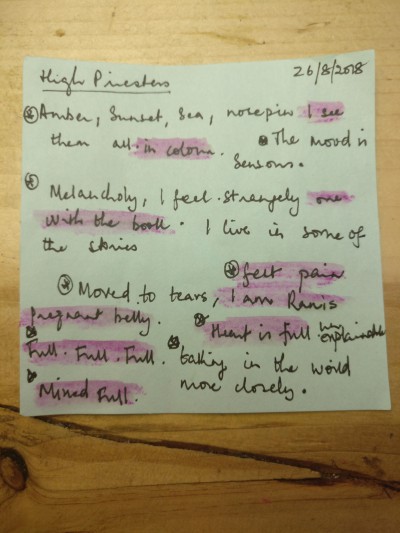 High Priestess 26/8/2018
Amber, Sunset, Sea, nosepins I see
them all in colour. The mood is
Sensous.
Melancholy, I feel strangely one
with the book. I live in some of
the stories
felt pain
Moved to tears, I am Ranis
pregnant belly. Heart is full
Full. Full. Full. taking in the world
Mind Full. more closely.